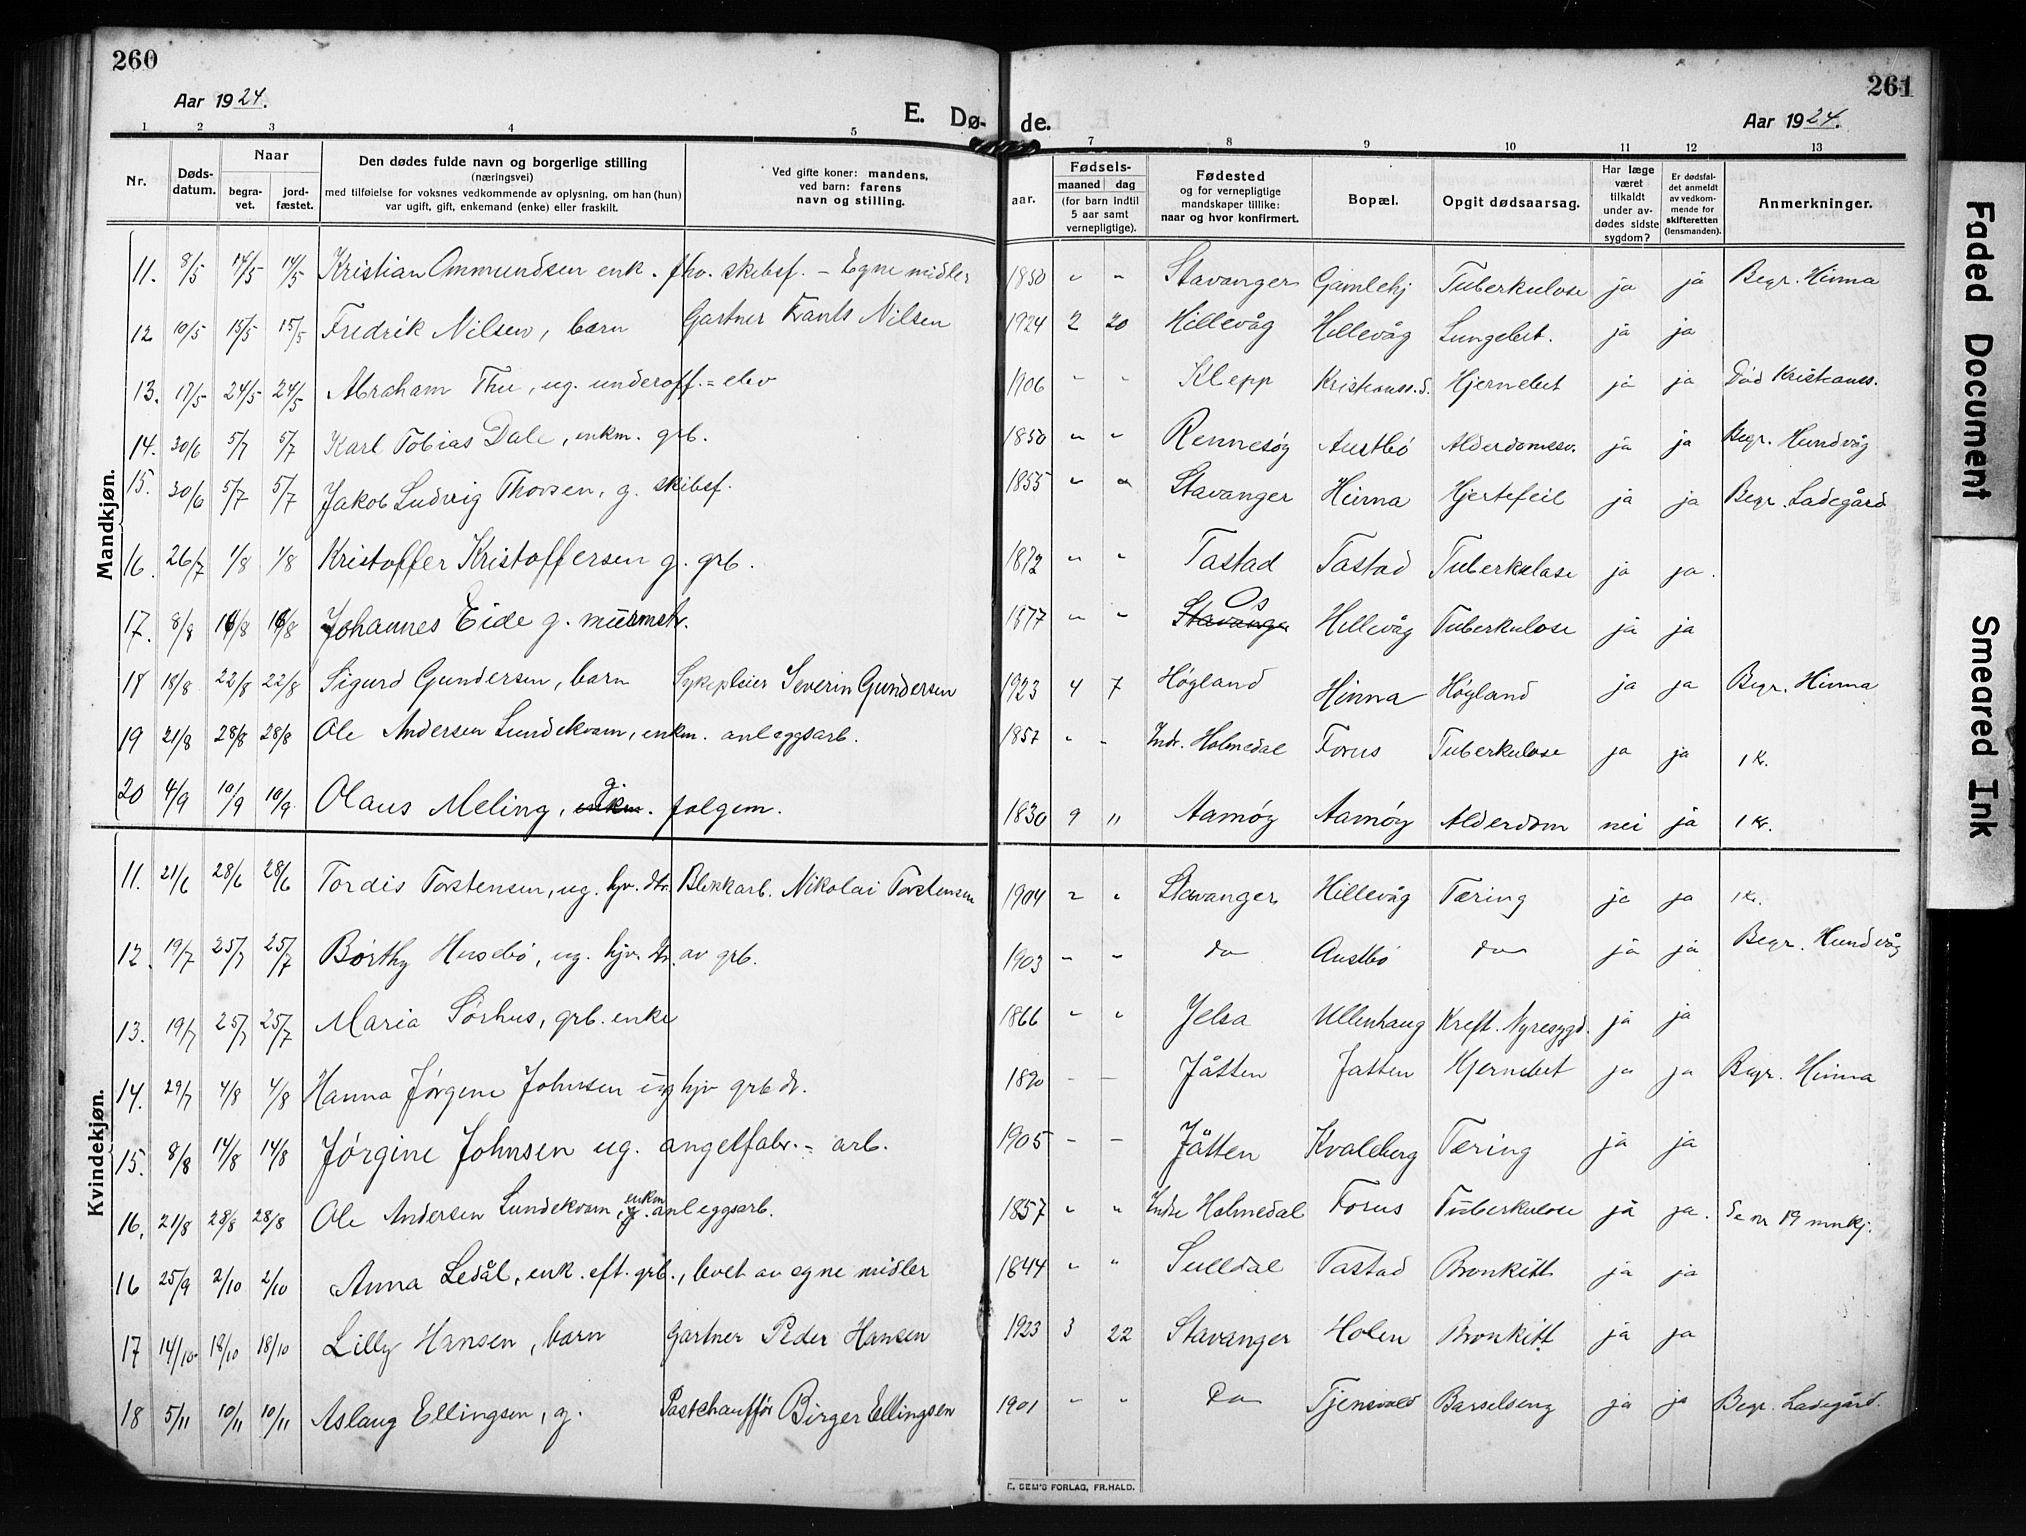 260
Aar 1924.
E. Dø-
1 2 3 4 5
Nr.
Døds-
datum.
Naar
begra-
vet.
jord-
fæstet.
Den dødes fulde navn og borgerlige stilling
(næringsvei)
med tilføielse for voksnes vedkommende av oplysning, om han (hun)
var ugift, gift, enkemand (enke) eller fraskilt.
Ved gifte koner: mandens,
ved barn: farens
navn og stilling.
Mandkjøn.
11. 8/5 14/5 14/5 Kristian Ommundsen enk. fhv. skibsf. - Egne midler
12 10/5 15/5 15/5 Fredrik Nilsen, barn Gartner Nilsen
13. 17/5 24/5 24/5 Abraham Thu, ug. underoff. = elev
14. 30/6 5/7 5/7 Karl Tobias Dale, enkm. grb.
15. 30/6 5/7 5/7 Jakob Ludvig Thorsen, g. skibsf.
16. 26/7 1/8 1/8 Kristoffer Kristoffersen g. grb.
17. 8/8 16/8 16/8 Johannes Eide g. murmstr.
18 18/8 22/8 22/8 Sigurd Gundersen, barn Sykepleier Severin Gundersen
19 21/8 28/8 28/8 Ole Andersen Lundekvam, enkm. anleggsarb.
20 4/9 10/9 10/9 Olaus Meling, enkm g. folgem.
Kvindekjøn.
11. 21/6 28/6 28/6 Tordis Torstensen, ug. hjv. dtr. Blikkarb. Nikolai Torstensen
12. 19/7 25/7 25/7 Børthy Husebø, ug. hjv. dtr. av grb.
13. 19/7 25/7 25/7 Maria Sørhus, grb. enke
14. 29/7 4/8 4/8 Hanna Jørgene Johnsen ug hjv grb dt.
15. 8/8 14/8 14/8 Jørgine Johnsen ug. angelfabr. = arb.
16. 21/8 28/8 28/8 Ole Andersen Lundekvam, g. enkm anleggsarb.
16 25/9 2/10 2/10 Anna Ledål, enk. eft. grb., levet av egne midler
17 14/10 18/10 18/10 Lilly Hansen, barn Gartner Peder Hansen
18 5/11 10/11 10/11 Aslaug Ellingsen, g. Postchauffør Birger Ellingsen
261
de.
Aar 1924.
7 8 9 10 11 12 13
Fødsels-
aar.
maaned
dag
(for barn indtil
5 aar samt
vernepligtige).
Fødested
og for vernepligtige
mandskaper tillike:
naar og hvor konfirmert.
Bopæl.
Opgit dødsaarsag.
Har læge
været
tilkaldt
under av-
dødes sidste
sygdom?
Er dødsfal-
det anmeldt
av vedkom-
mende for
skifteretten
(lensmanden).
Anmerkninger.
1850 " " Stavanger Gamlehj Tuberkulose ja ja Begr. Hinna
1924 2 20 Hillevåg Hillevåg Lungebet. ja ja
1906 " " Klepp Kristianss. S. Hjernebet ja ja Død Kristianss.
1850 " " Rennesøy Austbø Alderdomssv. ja ja Begr. Hundvåg
1855 " " Stavanger Hinna Hjertefeil ja ja Begr. Ladegård
1872 " " Tastad Tastad Tuberkulose ja ja.
1877 " " Stavanger Os Hillevåg Tuberkulose ja ja
1923 4 7 Høgland Hinna Høgland ja ja Begr. Hinna
1857 " " Indr. Holmedal Forus Tuberkulose ja ja 1 kr.
1830 9 " Aamøy Aamøy Alderdom nei ja 1 kr.
1904 " " Stavanger Hillevåg Tæring ja ja 1 kr.
1903 " " do Austbø do ja ja Begr. Hundvåg
1866 " " Jelsa Ullenhaug Kreft. Nyresygd. ja ja
1890 - - Jåtten Jåtten Hjernebet ja ja Begr. Hinna
1905 - - Jåtten Kvaleberg Tæring ja ja
1857 " " Indre Holmedal Forus Tuberkulose ja ja. Se nr 19 mnkj.
1844 " " Sulldal Tastad Bronkitt ja ja
1923 3 22 Stavanger Holen Bronkitt ja ja
1901 " " Do Tjensvold Barselseng ja ja Begr. Ladegård.
E. SEM'S FORLAG, FR.HALD.
Faded Document
Smeared Ink